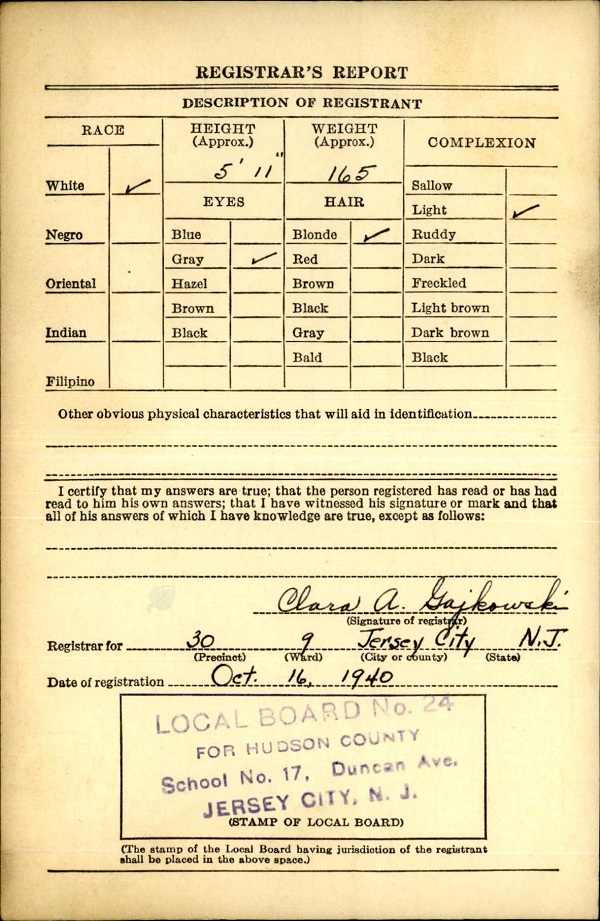 REGISTRAR'S REPORT
DESCRIPTION OF REGISTRANT
RACE
HEIGHT (Approx.)
WEIGHT (Approx.)
COMPLEXION
5' 11"
165
White ✓
EYES
HAIR
Sallow
Light ✓
Negro
Blue
Blonde ✓
Ruddy
Gray ✓
Red
Dark
Oriental
Hazel
Brown
Freckled
Brown
Black
Light brown
Indian
Black
Gray
Dark brown
Bald
Black
Filipino
Other obvious physical characteristics that will aid in identification
I certify that my answers are true; that the person registered has read or has had
read to him his own answers; that I have witnessed his signature or mark and that
all of his answers of which I have knowledge are true, except as follows:
Clara A. Gajkowski
(Signature of registrar)
Registrar for 30 9 Jersey City N.J.
(Precinct) (Ward) (City or county) (State)
Date of registration Oct. 16, 1940
LOCAL BOARD No. 24
FOR HUDSON COUNTY
School No. 17, Duncan Ave.
JERSEY CITY, N. J.
(STAMP OF LOCAL BOARD)
(The stamp of the Local Board having jurisdiction of the registrant
shall be placed in the above space.)